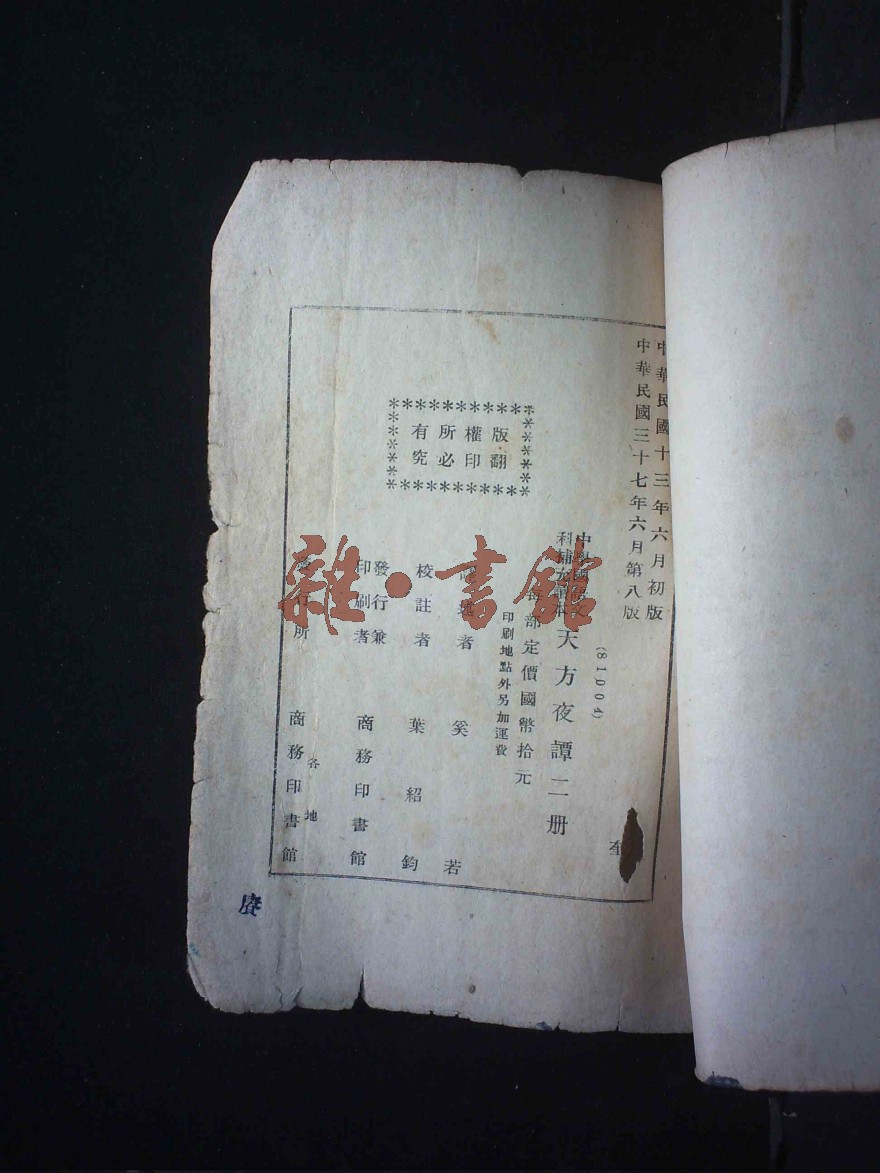 中華民國十三年六月初版
中華民國三十七年六月第八版
(81004)
科補充讀本
天方夜譚二册
每部定價國幣拾元
印刷地點外另加運費
版權所有
翻印必究
者 奚 若
校註者 葉紹鈞
發行兼
印刷者
商務印書館
發行所
各地
商務印書館
雜·書館